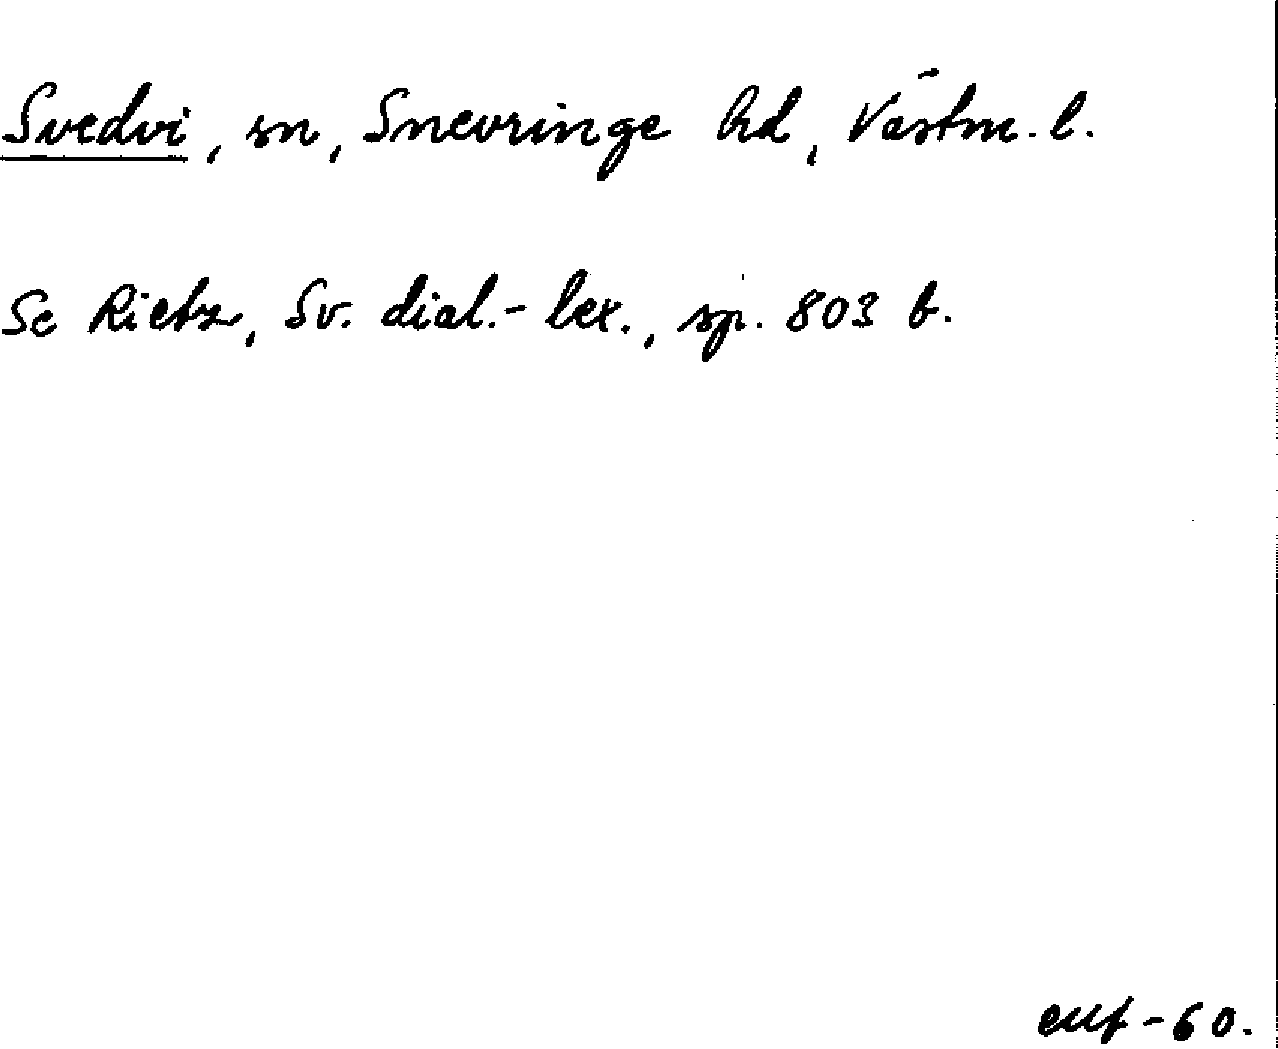 Svedvi, sn, Snevringe hd, Västm. l.
Se Rietz, Sv. dial.-lex., sp. 803 b.
-60.